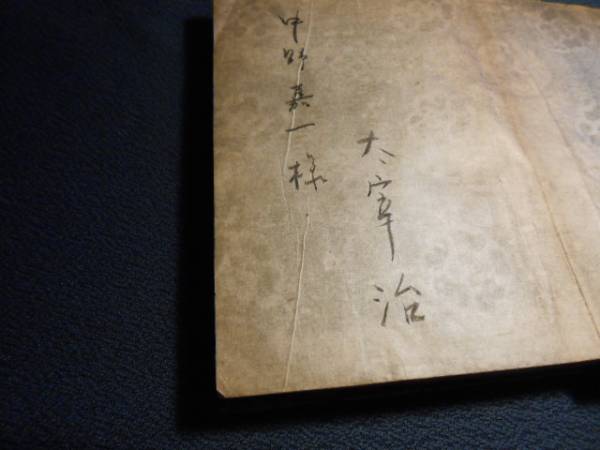 太宰治
中野嘉一様